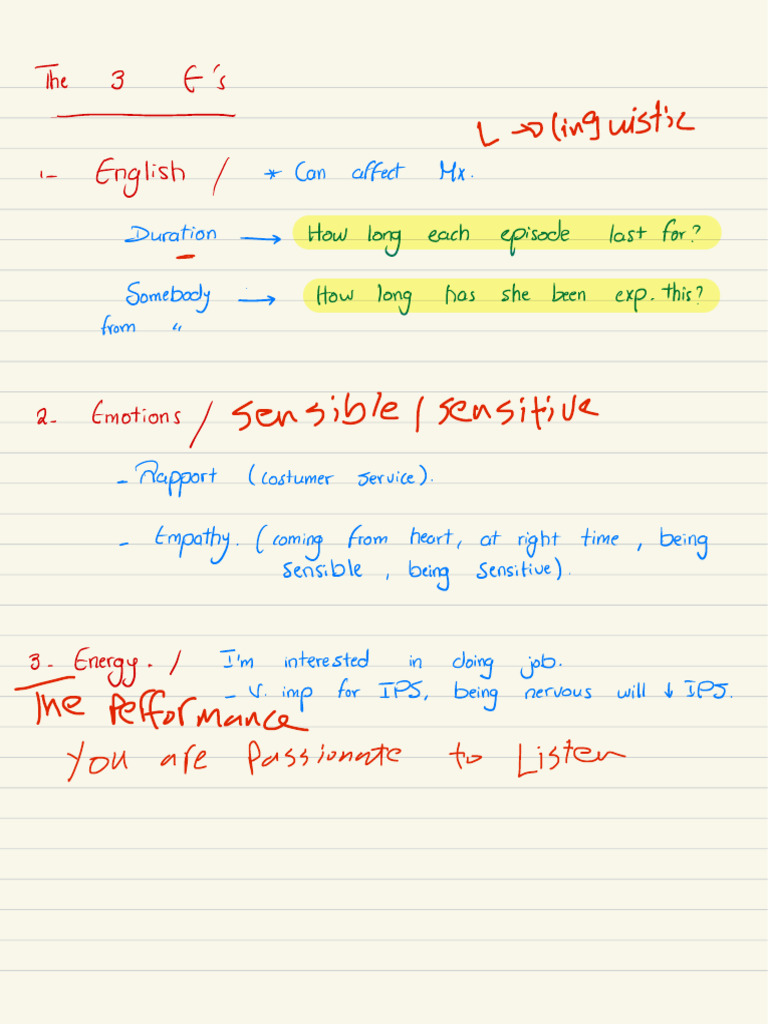 The 3 E's
L → linguistic
1- English / * Can affect Mx.
Duration → How long each episode last for?
Somebody → How long has she been exp. this?
from "
2- Emotions / sensible / sensitive
- Rapport (costumer service).
- Empathy. (coming from heart, at right time, being
sensible, being sensitive).
3- Energy. / I'm interested in doing job.
- V. imp for IPS, being nervous will ↓ IPS.
The Performance
You are Passionate to Listen